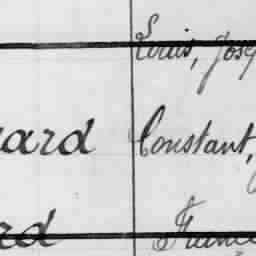 Louis, Jose
ard Constant,
rd France